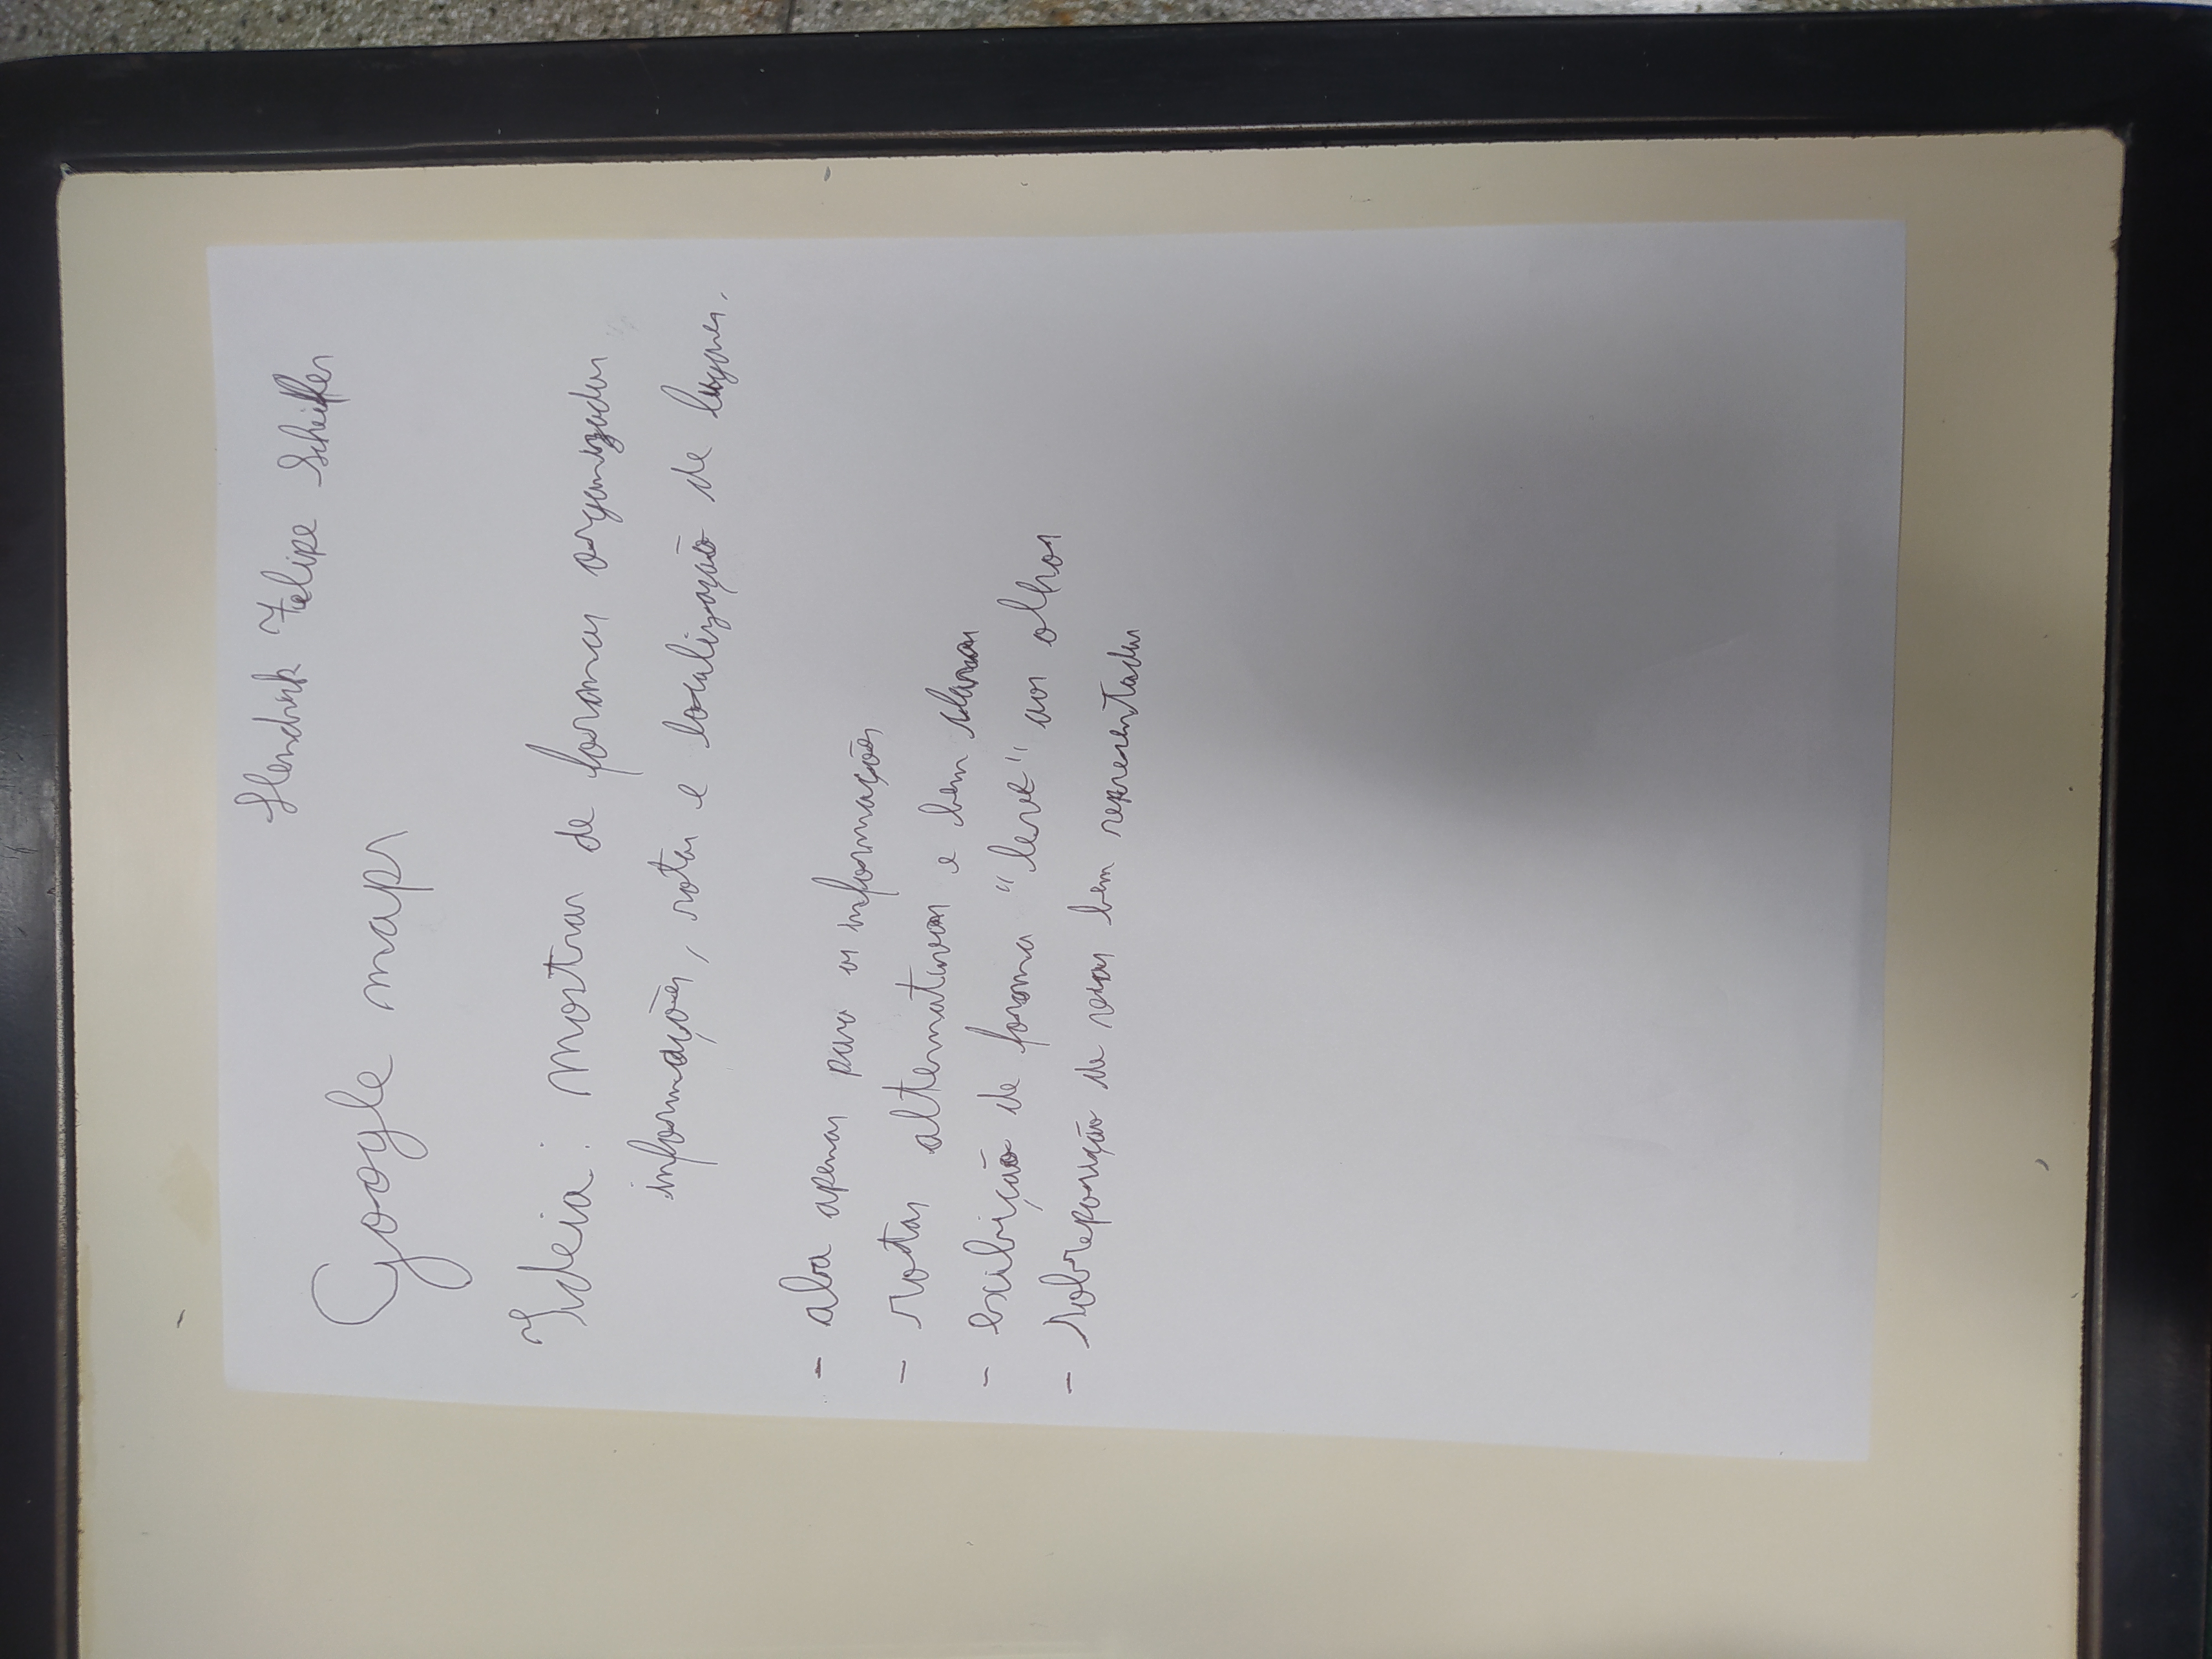 Hendrik Felipe Scheiffer
Google maps
Ideia: Mostrar de formas organizadas
informações, rotas e localização de lugares.
- aba apenas para as informações
- rotas alternativas e bem claras
- exibição de forma "leve" aos olhos
- sobreposição de bem representadas